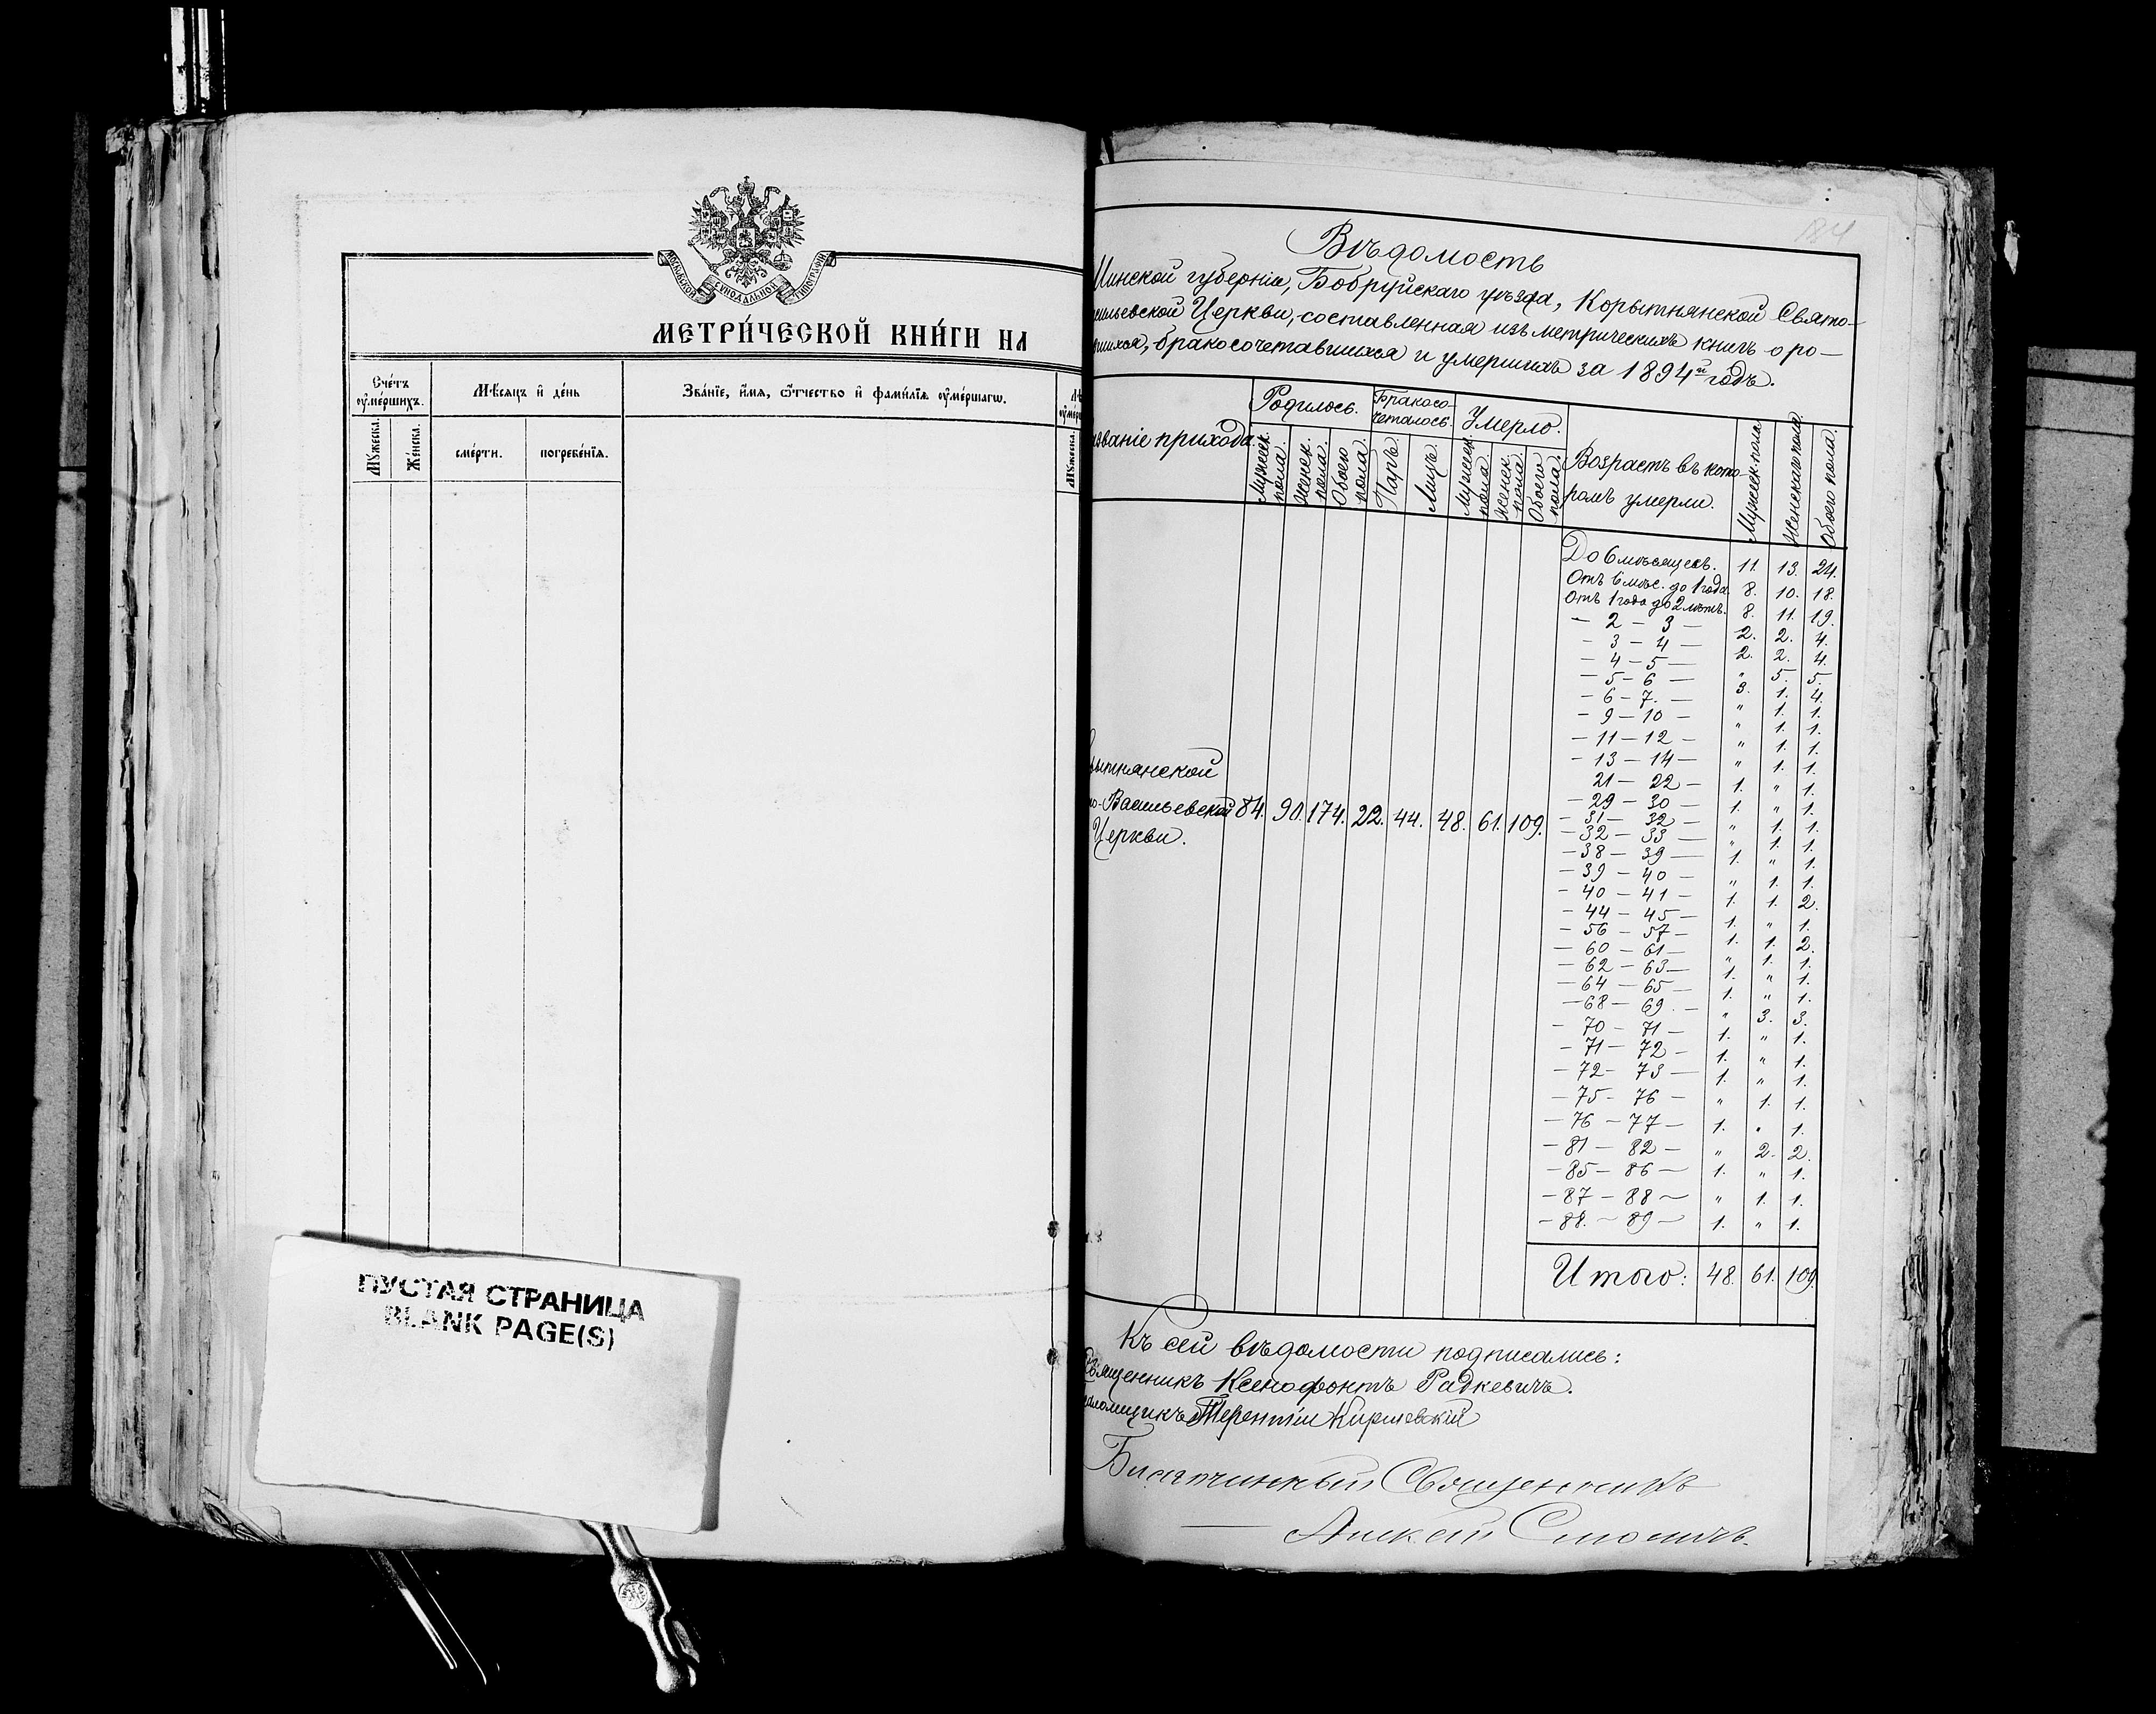 МОСКОВСКОЙ СѴНОДАЛЬНОЙ ТИПОГРАФІИ
МЕТРИ́ЧЕСКОЙ КНИ́ГИ НА
Сче́тъ ѹме́ршихъ.
Мѣ́сяцъ и҆ де́нь
Зва́нїе, и҆́мя, ѻ҆́тчество и҆ фами́лїя ѹме́ршагѡ.
Мꙋ́жеска.
Же́нска.
сме́рти.
погребе́нїя.
Мꙋ́жеска.
ПУСТАЯ СТРАНИЦА
BLANK PAGE(S)
184
Вѣдомость
Минской губерніи, Бобруйскаго уѣзда, Корытнянской Свято-
сильевской Церкви, составленная изъ метрическихъ книгъ о ро-
вшихся, бракосочетавшихся и умершихъ за 1894й годъ.
званіе прихода.
Родилось.
Бракосо-
четалось.
Умерло.
Возрастъ въ кото-
ромъ умерли.
Мужеск. пола.
Женск. пола.
Обоего пола.
Паръ.
Лицъ.
Мужеск. пола.
Женск. пола.
Обоего пола.
Мужеск. пола.
Женскаго пола.
Обоего пола.
рытнянской
о-Васильевской 84. 90. 174. 22. 44. 48. 61. 109.
Церкви.
До 6 мѣсяцевъ. 11. 13. 24.
Отъ 6 мѣс. до 1 года 8. 10. 18.
Отъ 1 года до 2 лѣтъ. 8. 11. 19.
— 2 — 3 — 2. 2. 4.
— 3 — 4 — 2. 2. 4.
— 4 — 5 — „ 5. 5.
— 5 — 6 — 3. 1. 4.
— 6 — 7. — „ 1. 1.
— 9 — 10 — „ 1. 1.
— 11 — 12 — „ 1. 1.
— 13 — 14 — „ 1. 1.
21 — 22 — 1. „ 1.
— 29 — 30 — 1. „ 1.
— 31 — 32 — „ 1. 1.
— 32 — 33 — „ 1. 1.
— 38 — 39 — 1. „ 1.
— 39 — 40 — „ 1. 1.
— 40 — 41 — 1. 1. 2.
— 44 — 45 — 1. „ 1.
— 56 — 57 — 1. 1. 2.
— 60 — 61 — „ 1. 1.
— 62 — 63 — 1. „ 1.
— 64 — 65 — 1. „ 1.
— 68 — 69 — „ 3. 3.
— 70 — 71 — 1. „ 1.
— 71 — 72 — 1. „ 1.
— 72 — 73 — 1. „ 1.
— 75 — 76 — „ 1. 1.
— 76 — 77 — 1. „ 1.
— 81 — 82 — „ 2. 2.
— 85 — 86 — 1. „ 1.
— 87 — 88 — „ 1. 1.
— 88. — 89 — 1. „ 1.
Итого: 48. 61. 109.
Къ сей вѣдомости подписались:
Священникъ Ксенофонтъ Радкевичъ.
саломщикъ Терентій Киршевскій
Благочинный Священникъ
Алексѣй Смоличъ.